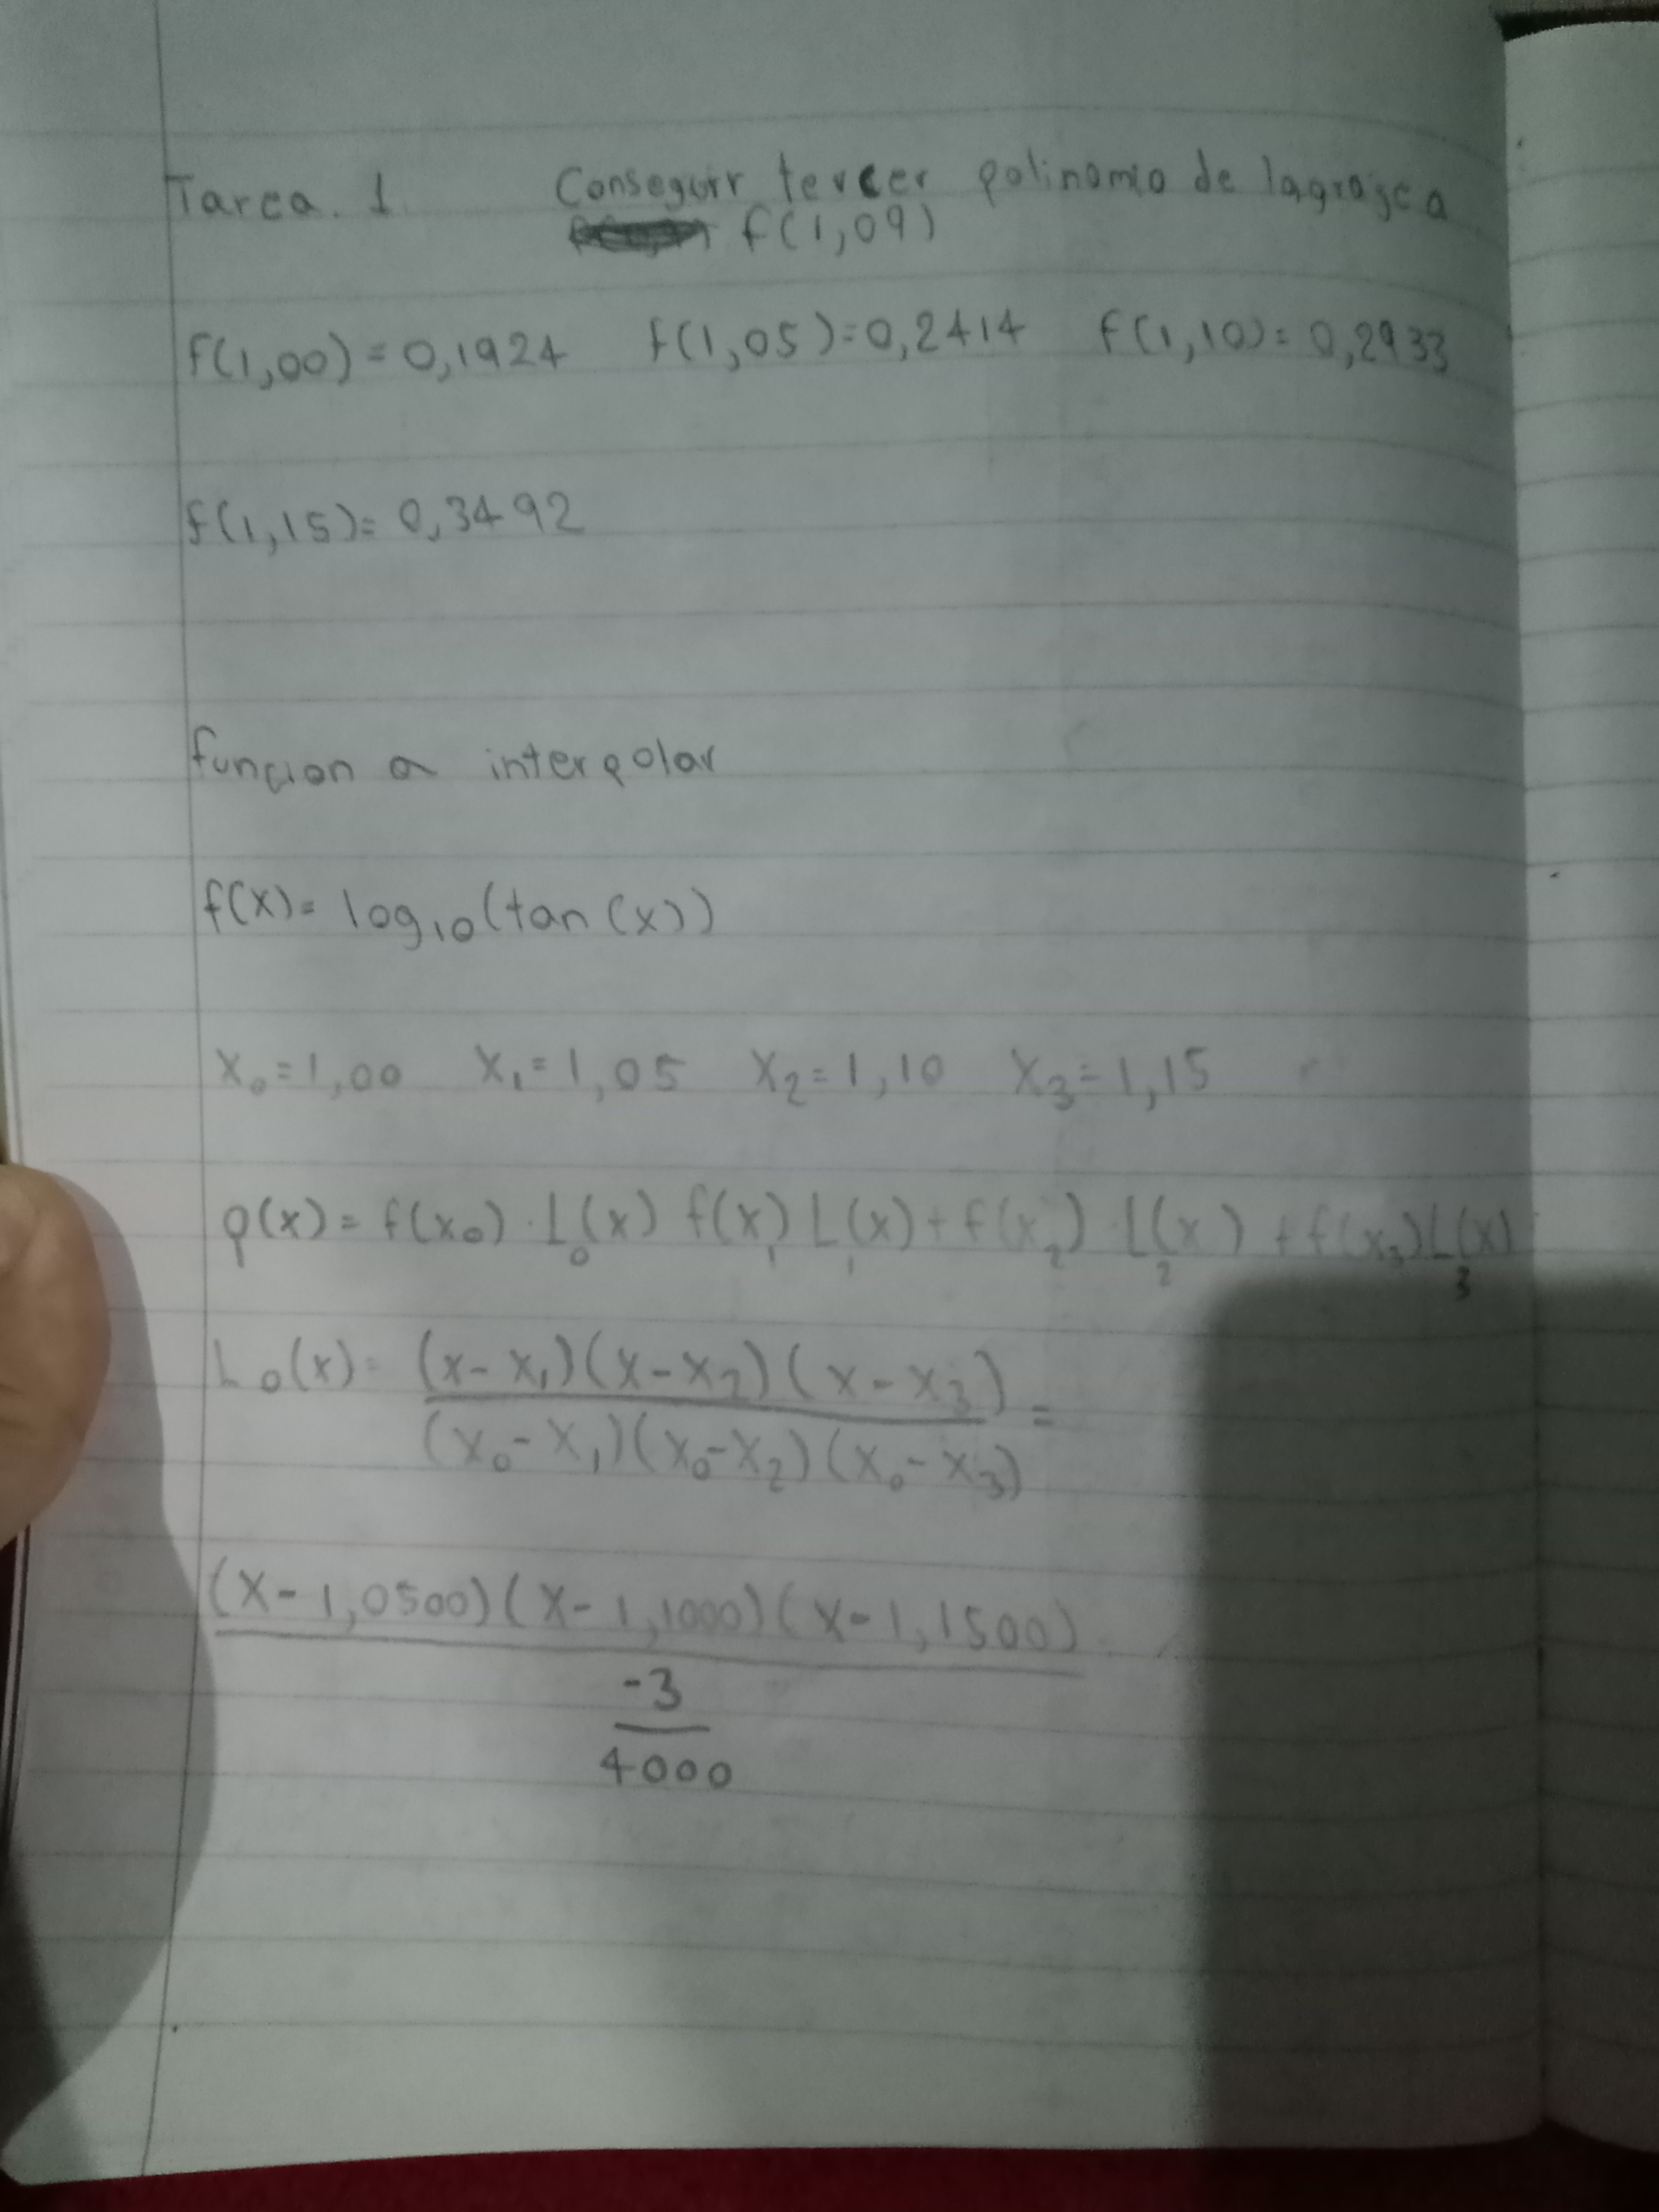 Tarea. 1. Conseguir tercer polinomio de lagrajea
f(1,09)
f(1,00) = 0,1924 f(1,05)=0,2414 f(1,10)= 0,2933
f(1,15)= 0,3492
funcion a interpolar
f(x)= log₁₀(tan(x))
X₀=1,00 X₁=1,05 X₂=1,10 X₃=1,15
p(x)= f(x₀)·L₀(x) f(x₁)L₁(x)+f(x₂)·L₂(x)+f(x₃)L₃(x)
L₀(x)= (x-x₁)(x-x₂)(x-x₃) =
(x₀-x₁)(x₀-x₂)(x₀-x₃)
(x-1,0500)(x-1,1000)(x-1,1500)
-3
4000